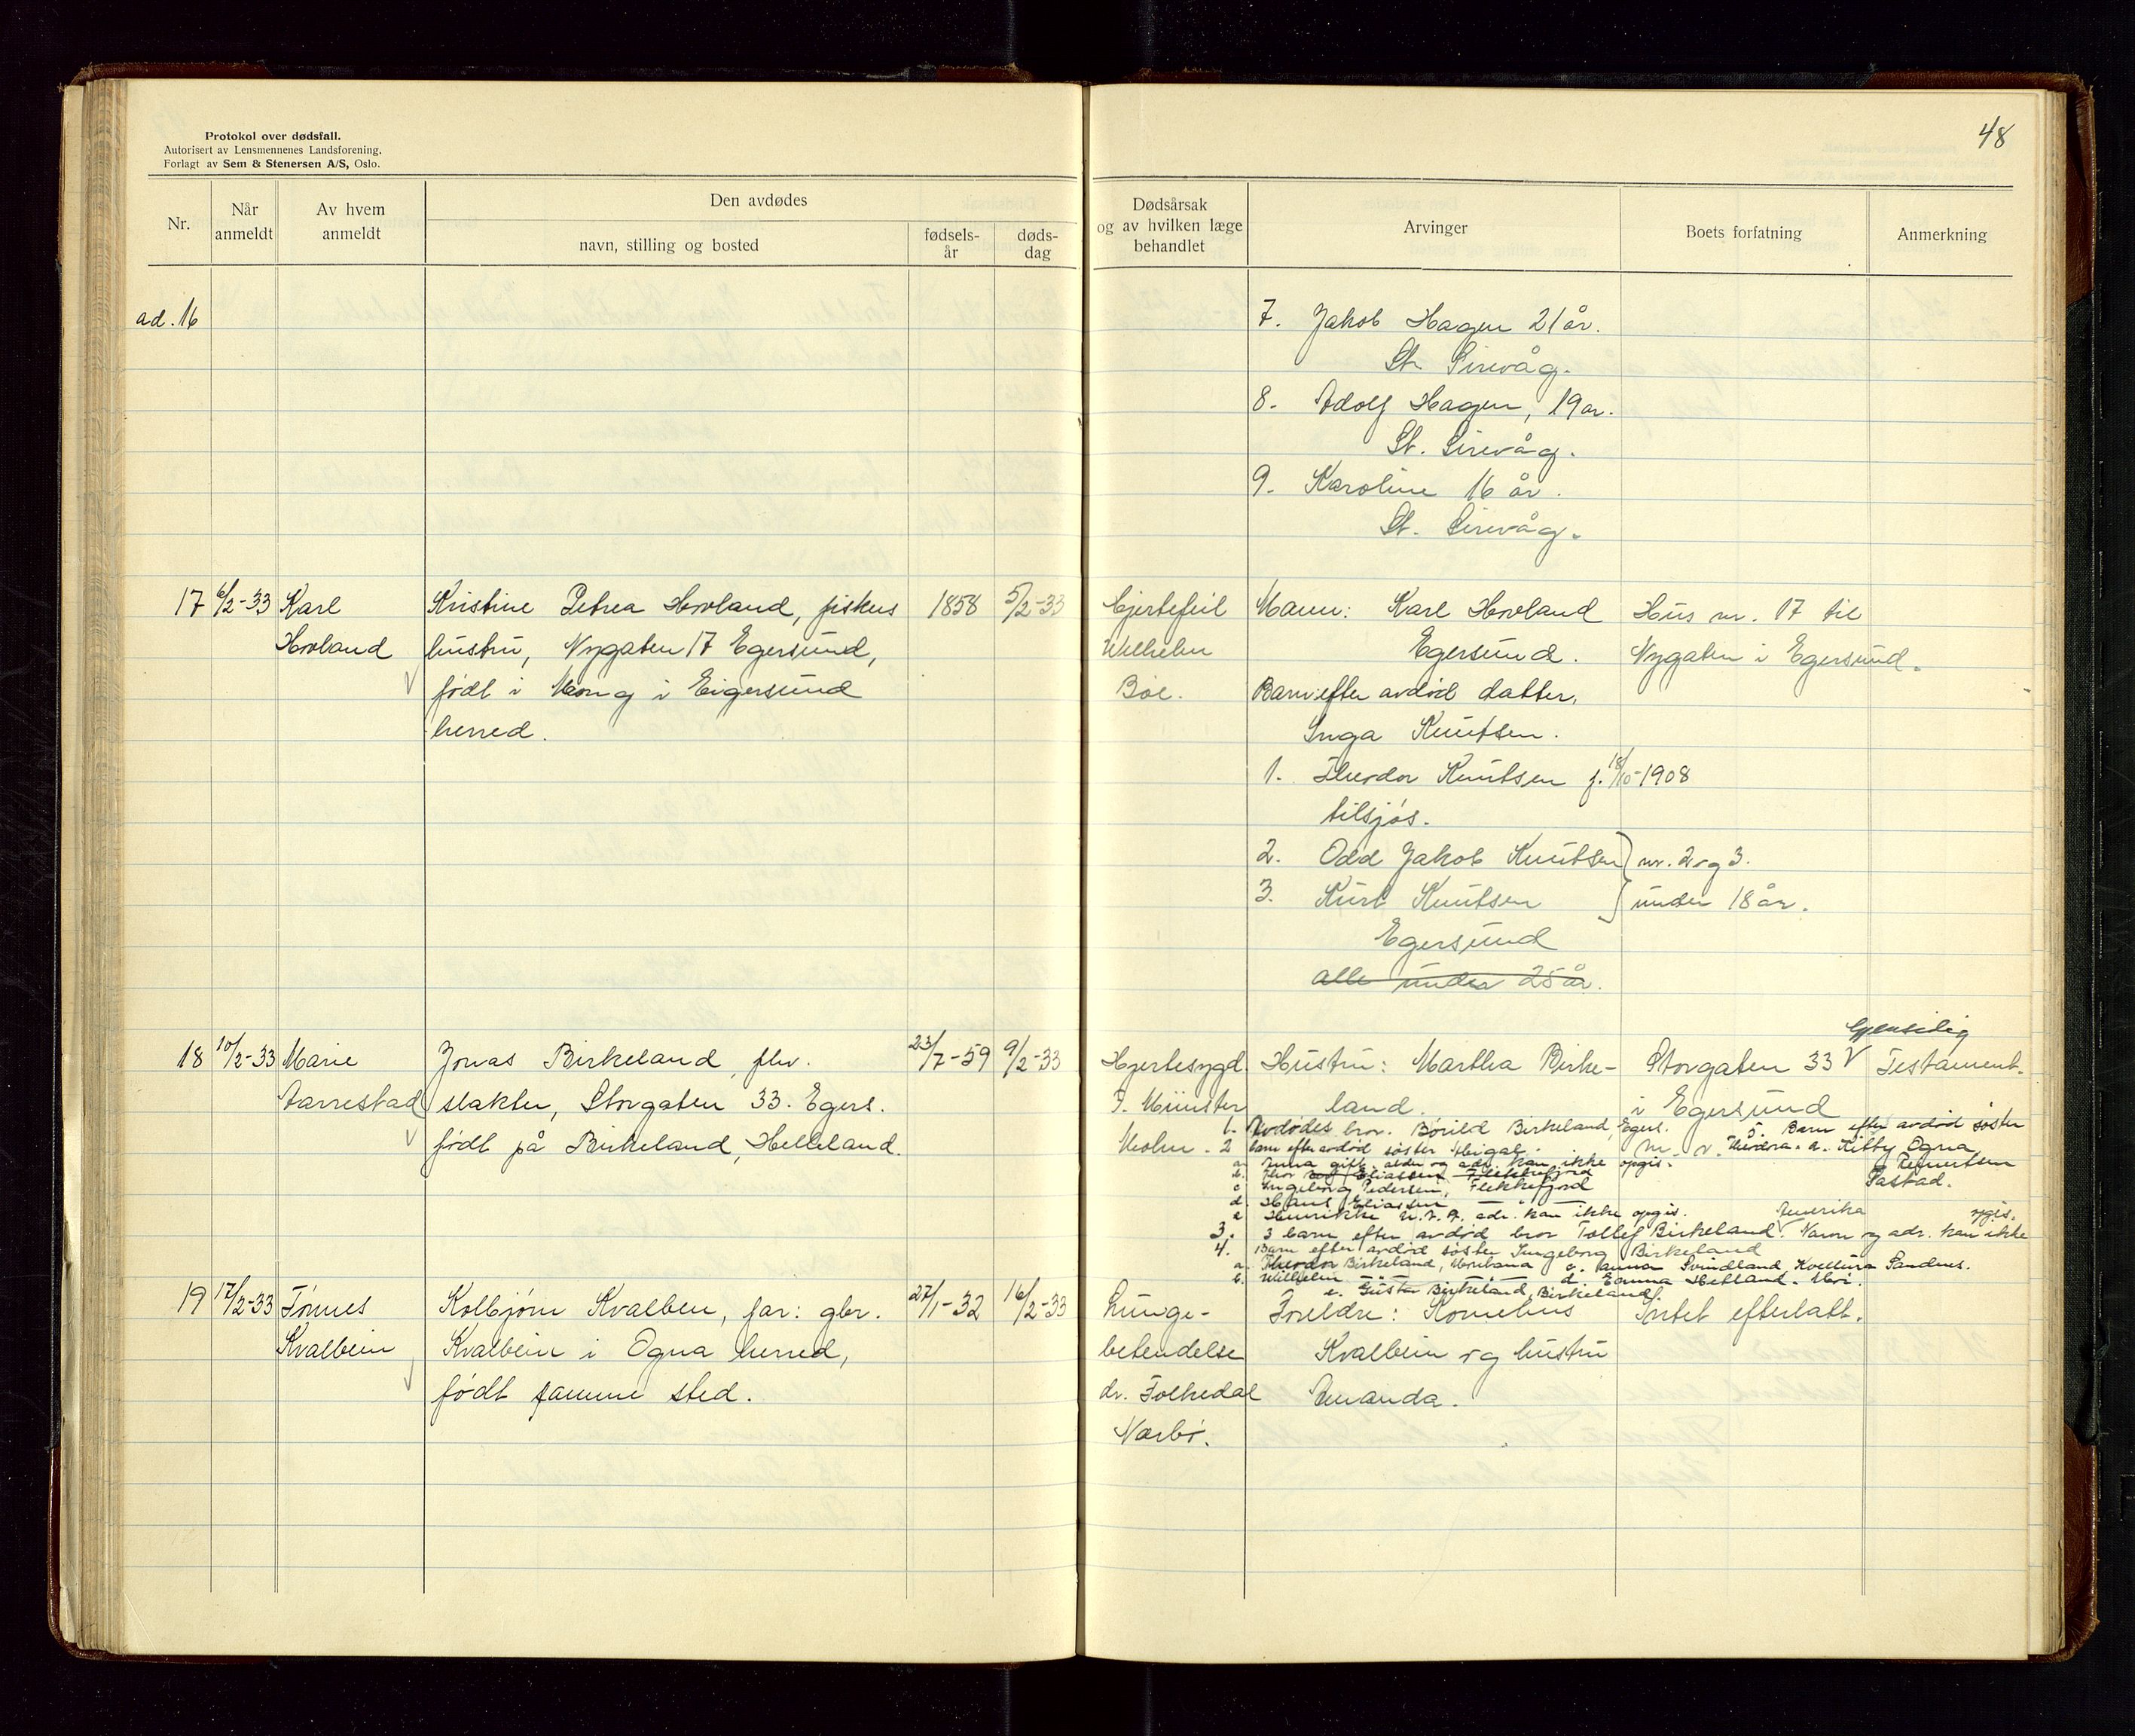 48
Protokol over dødsfall.
Autorisert av Lensmennenes Landsforening.
Forlagt av Sem & Stenersen A/S, Oslo.
Nr.
Når anmeldt
Av hvem anmeldt
Den avdødes
navn, stilling og bosted
fødsels-år
døds-dag
Dødsårsak og av hvilken læge behandlet
Arvinger
Boets forfatning
Anmerkning
ad. 16
7. Jakob Hagen 21 år.
St. Sirevåg.
8. Adolf Hagen, 19 år.
St. Sirevåg.
9. Karoline 16 år.
St. Sirevåg.
17 6/2-33 Karl
Hovland
Kristine Petrea Hovland, fiskers
hustru, Nygaten 17 Egersund,
født i Mong i Eigersund
herred.
1858 5/2-33
Hjertefeil
Wilhelm
Bøe.
Mann: Karl Hovland
Egersund.
Barn efter avdød datter,
Inga Knutsen.
1. Theodor Knutsen f. 18/10-1908
tilsjøs.
2. Odd Jakob Knutsen
3. Kurt Knutsen
nr. 2 og 3.
under 18 år.
Egersund
alle under 25 år.
Hus nr. 17 til
Nygaten i Egersund.
18 10/2-33 Marie
Aarrestad
Jonas Birkeland, fhv.
slakter, Storgaten 33. Egers.
født på Birkeland, Helleland.
23/7-59 9/2-33
Hjertesygd.
I. Münster
Mohn.
Hustru: Martha Birke-
land.
Storgaten 33
i Egersund
Gjensidig
Testament.
1. Avdødes bror. Børild Birkeland, Egers.
2 barn efter avdød søster
a. Anna gift, alder og adr. kan ikke opgis.
c. Ingeborg Pedersen, Flekkefjord
d. Hans Eliassen
e Henrikke adr. kan ikke opgis.
3. 3 barn efter avdød bror Tollef Birkeland. Amerika Navn og adr. kan ikke opgis.
4. Barn efter avdød søster Ingeborg Birkeland
a. Theodor Birkeland, c. Anna Svindland, Sandnes.
b. Wilhelm d. Emma Hetland.
e. Gusta Birkeland, Birkeland.
5. Barn efter avdød søster
a. Kitty Ogna
19 17/2-33 Tønnes
Kvalbein
Kolbjørn Kvalben, far: gbr.
Kvalbein i Ogna herred,
født samme sted.
27/1-32 16/2-33
Lunge-
betendelse
dr. Folkedal
Nærbø.
Foreldre: Kornelius
Kvalbein og hustru
Amanda.
Intet efterlatt.